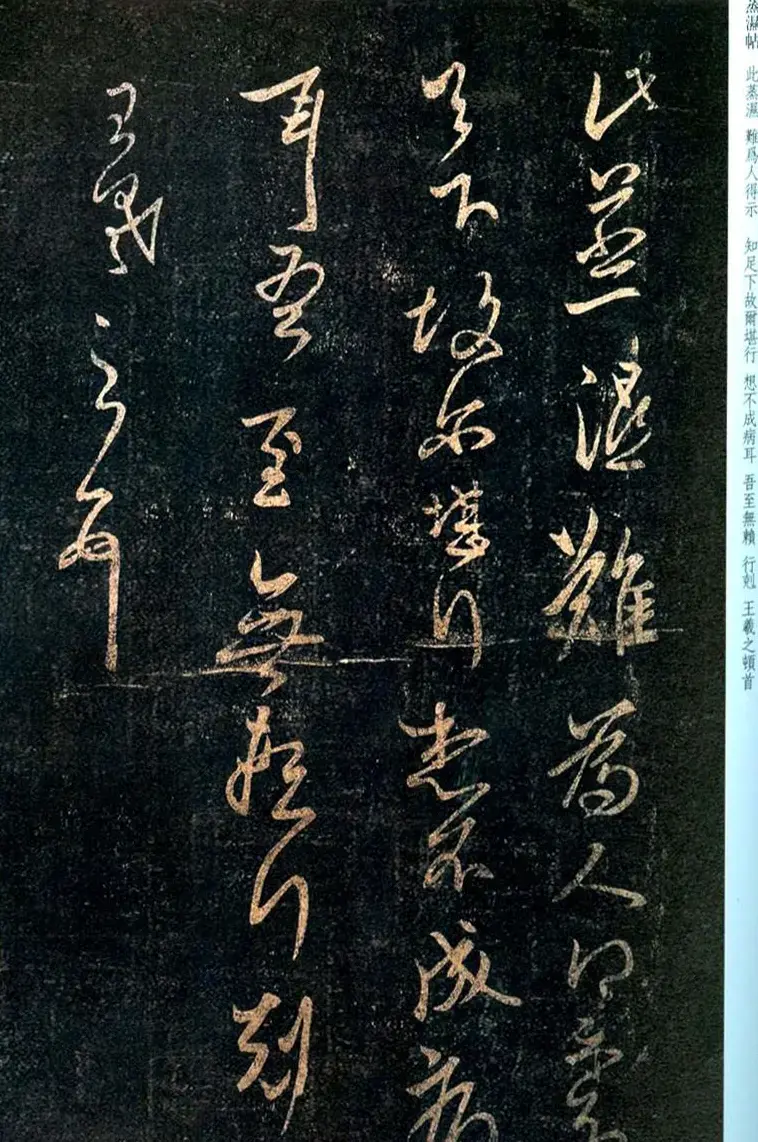 蒸濕帖 此蒸濕 難為人得示 知足下故爾堪行 想不成病耳 吾至無賴 行剋 王羲之頓首
此蒸濕難為人得示知
足下故爾堪行想不成病
耳吾至無賴行剋
王羲之頓首